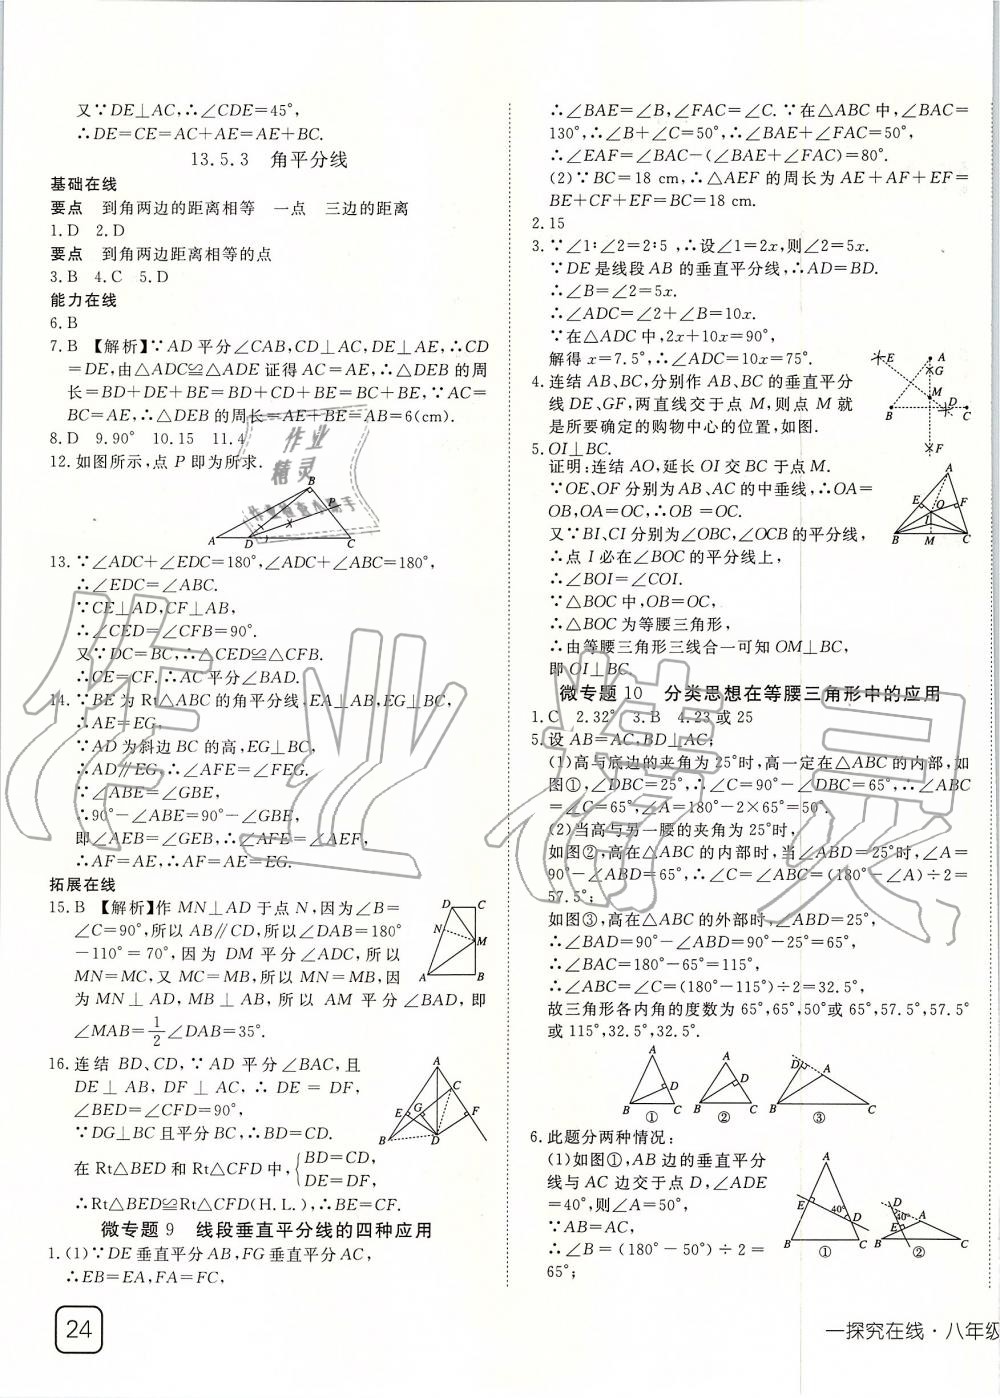 又∵DE⊥AC,∴∠CDE=45°,
∴DE=CE=AC+AE=AE+BC.
13.5.3 角平分线
基础在线
要点 到角两边的距离相等 一点 三边的距离
1.D 2.D
要点 到角两边距离相等的点
3.B 4.C 5.D
能力在线
6.B
7.B 【解析】∵AD平分∠CAB,CD⊥AC,DE⊥AE,∴CD
=DE,由△ADC≌△ADE证得AC=AE,∴△DEB的周
长=BD+DE+BE=BD+CD+BE=BC+BE,∵AC=
BC=AE,∴△DEB的周长=AE+BE=AB=6(cm).
8.D 9.90° 10.15 11.4
12.如图所示,点P即为所求.
B
P
A D C
13.∵∠ADC+∠EDC=180°,∠ADC+∠ABC=180°,
∴∠EDC=∠ABC.
∵CE⊥AD,CF⊥AB,
∴∠CED=∠CFB=90°.
又∵DC=BC,∴△CED≌△CFB.
∴CE=CF.∴AC平分∠BAD.
14.∵BE为Rt△ABC的角平分线,EA⊥AB,EG⊥BC,
∴AE=EG.
∵AD为斜边BC的高,EG⊥BC,
∴AD∥EG,∴∠AFE=∠FEG.
∵∠ABE=∠GBE,
∴90°-∠ABE=90°-∠GBE,
即∠AEB=∠GEB,∴∠AFE=∠AEF,
∴AF=AE,∴AF=AE=EG.
拓展在线
15.B 【解析】作MN⊥AD于点N,因为∠B=
∠C=90°,所以AB∥CD,所以∠DAB=180°
-110°=70°,因为DM平分∠ADC,所以
MN=MC,又MC=MB,所以MN=MB,因
为MN⊥AD,MB⊥AB,所以AM平分∠BAD,即
∠MAB=1/2∠DAB=35°.
D C
N
M
A B
16.连结BD、CD,∵AD平分∠BAC,且
DE⊥AB,DF⊥AC,∴DE=DF,
∠BED=∠CFD=90°,
∵DG⊥BC且平分BC,∴BD=CD.
在Rt△BED和Rt△CFD中,{BD=CD,
DE=DF,
∴Rt△BED≌Rt△CFD(H.L.),∴BE=CF.
A
C
E G F
B D
微专题9 线段垂直平分线的四种应用
1.(1)∵DE垂直平分AB,FG垂直平分AC,
∴EB=EA,FA=FC,
24
∴∠BAE=∠B,∠FAC=∠C.∵在△ABC中,∠BAC=
130°,∴∠B+∠C=50°,∴∠BAE+∠FAC=50°,
∴∠EAF=∠BAC-(∠BAE+∠FAC)=80°.
(2)∵BC=18 cm,∴△AEF的周长为AE+AF+EF=
BE+CF+EF=BC=18 cm.
2.15
3.∵∠1∶∠2=2∶5,∴设∠1=2x,则∠2=5x.
∵DE是线段AB的垂直平分线,∴AD=BD.
∴∠B=∠2=5x.
∴∠ADC=∠2+∠B=10x.
∵在△ADC中,2x+10x=90°,
解得x=7.5°,∴∠ADC=10x=75°.
4.连结AB、BC,分别作AB、BC的垂直平分
线DE、GF,两直线交于点M,则点M就
是所要确定的购物中心的位置,如图.
E A
G
M
B D C
F
5.OI⊥BC.
证明:连结AO,延长OI交BC于点M.
∵OE、OF分别为AB、AC的中垂线,∴OA=
OB,OA=OC,∴OB=OC.
又∵BI、CI分别为∠OBC、∠OCB的平分线,
∴点I必在∠BOC的平分线上,
∴∠BOI=∠COI.
∵△BOC中,OB=OC,
∴△BOC为等腰三角形,
∴由等腰三角形三线合一可知OM⊥BC,
即OI⊥BC.
A
E F
O
I
B M C
微专题10 分类思想在等腰三角形中的应用
1.C 2.32° 3.B 4.23或25
5.设AB=AC,BD⊥AC;
(1)高与底边的夹角为25°时,高一定在△ABC的内部,如
图①,∠DBC=25°,∴∠C=90°-∠DBC=65°,∴∠ABC
=∠C=65°,∠A=180°-2×65°=50°.
(2)当高与另一腰的夹角为25°时,
如图②,高在△ABC的内部时,当∠ABD=25°时,∠A=
90°-∠ABD=65°,∴∠C=∠ABC=(180°-∠A)÷2=
57.5°;
如图③,高在△ABC的外部时,∠ABD=25°,
∴∠BAD=90°-∠ABD=90°-25°=65°,
∴∠BAC=180°-65°=115°,
∴∠ABC=∠C=(180°-115°)÷2=32.5°,
故三角形各内角的度数为65°,65°,50°或65°,57.5°,57.5°
或115°,32.5°,32.5°.
A D B C ①
A D B C ②
D A B C ③
6.此题分两种情况:
(1)如图①,AB边的垂直平分
线与AC边交于点D,∠ADE
=40°,则∠A=50°,
∵AB=AC,
∴∠B=(180°-50°)÷2=
65°;
A E 40° D B C ①
D 40° A E B C ②
一探究在线·八年级
作业精灵
作业
精灵
作业检查小助手